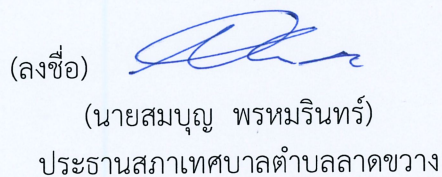 (ลงชื่อ)
(นายสมบุญ  พรหมรินทร์)
ประธานสภาเทศบาลตำบลลาดขวาง